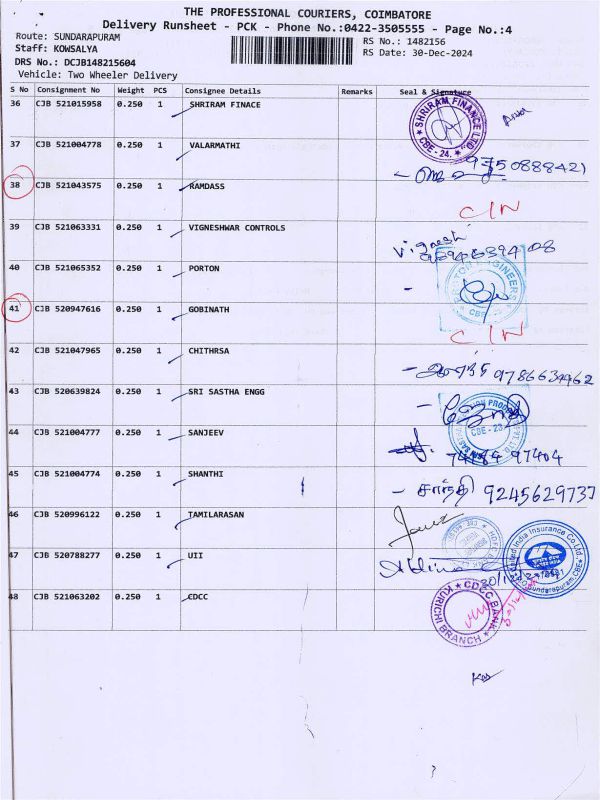 THE PROFESSIONAL COURIERS, COIMBATORE
Delivery Runsheet - PCK - Phone No.:0422-3505555 - Page No.:4
Route: SUNDARAPURAM
RS No.: 1482156
Staff: KOWSALYA
RS Date: 30-Dec-2024
DRS No.: DCJB148215604
Vehicle: Two Wheeler Delivery
S No Consignment No Weight PCS Consignee Details Remarks Seal & Signature
36 CJB 521015958 0.250 1 SHRIRAM FINACE
SHRIRAM FINANCE LTD CBE - 24.
37 CJB 521004778 0.250 1 VALARMATHI
9750888421
38 CJB 521043575 0.250 1 RAMDASS
C/N
39 CJB 521063331 0.250 1 VIGNESHWAR CONTROLS
Vignesh
40 CJB 521065352 0.250 1 PORTON
ENGINEERS
41 CJB 520947616 0.250 1 GOBINATH
C/N
42 CJB 521047965 0.250 1 CHITHRSA
9786634462
43 CJB 520639824 0.250 1 SRI SASTHA ENGG
CBE - 23.
44 CJB 521004777 0.250 1 SANJEEV
97404
45 CJB 521004774 0.250 1 SHANTHI
சாந்தி 9245629737
46 CJB 520996122 0.250 1 TAMILARASAN
47 CJB 520788277 0.250 1 UII
United India Insurance Co.Ltd.,
Sundarapuram
48 CJB 521063202 0.250 1 CDCC
CDCC BANK KURICHI BRANCH